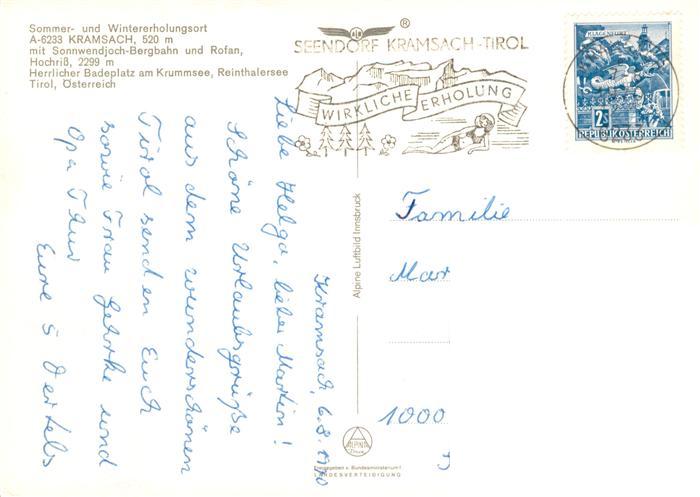 Sommer- und Wintererholungsort
A-6233 KRAMSACH, 520 m
mit Sonnwendjoch-Bergbahn und Rofan,
Hochriß, 2299 m
Herrlicher Badeplatz am Krummsee, Reinthalersee
Tirol, Österreich
®
SEENDORF KRAMSACH-TIROL
WIRKLICHE ERHOLUNG
KLAGENFURT
2S
REPUBLIK ÖSTERREICH
Kramsach, 6.8.1970
Liebe Helga, lieber Martin!
Schöne Urlaubsgrüße
aus dem wunderschönen
Tirol senden Euch
sowie Frau und
Opa
Eure 5 Oertels
Alpine Luftbild Innsbruck
Familie
Mar
1000
ALPINE
Freigegeben v. Bundesministerium f.
LANDESVERTEIDIGUNG